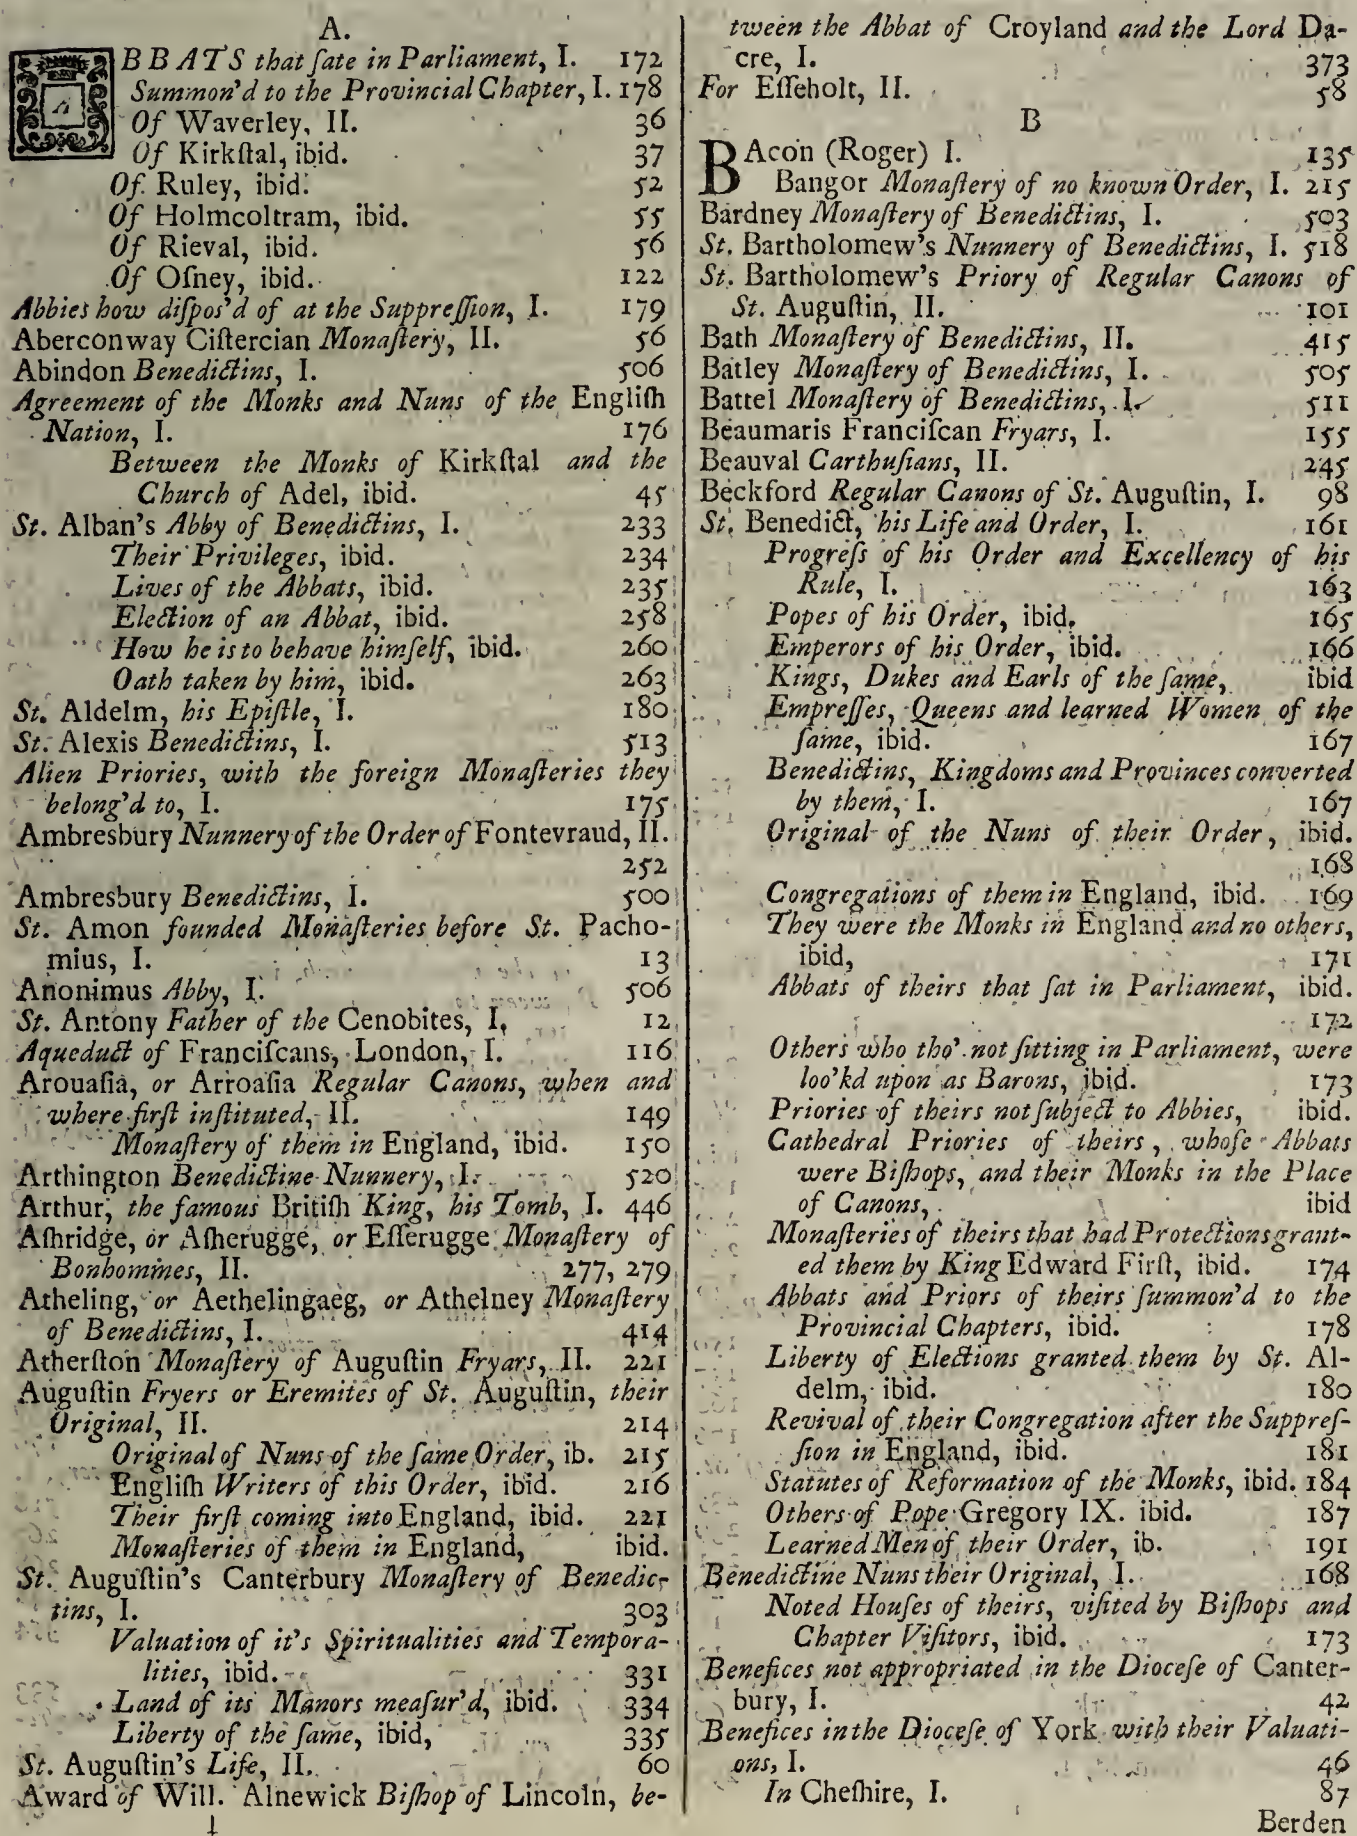 A.
ABBATS that ſate in Parliament, I. 172
Summon'd to the Provincial Chapter, I. 178
Of Waverley, II. 36
Of Kirkſtal, ibid. 37
Of Ruley, ibid. 52
Of Holmcoltram, ibid. 55
Of Rieval, ibid. 56
Of Oſney, ibid. 122
Abbies how diſpos'd of at the Suppreſſion, I. 179
Aberconway Ciſtercian Monaſtery, II. 56
Abindon Benedictins, I. 506
Agreement of the Monks and Nuns of the Engliſh
Nation, I. 176
Between the Monks of Kirkſtal and the
Church of Adel, ibid. 45
St. Alban's Abby of Benedictins, I. 233
Their Privileges, ibid. 234
Lives of the Abbats, ibid. 235
Election of an Abbat, ibid. 258
How he is to behave himſelf, ibid. 260
Oath taken by him, ibid. 263
St. Aldelm, his Epiſtle, I. 180
St. Alexis Benedictins, I. 513
Alien Priories, with the foreign Monaſteries they
belong'd to, I. 175
Ambresbury Nunnery of the Order of Fontevraud, II.
252
Ambresbury Benedictins, I. 500
St. Amon founded Monaſteries before St. Pacho-
mius, I. 13
Anonimus Abby, I. 506
St. Antony Father of the Cenobites, I. 12
Aqueduct of Franciſcans, London, I. 116
Arouaſia, or Arroaſia Regular Canons, when and
where firſt inſtituted, II. 149
Monaſtery of them in England, ibid. 150
Arthington Benedictine Nunnery, I. 520
Arthur, the famous Britiſh King, his Tomb, I. 446
Aſhridge, or Aſherugge, or Eſſerugge Monaſtery of
Bonhommes, II. 277, 279
Atheling, or Aethelingaeg, or Athelney Monaſtery
of Benedictins, I. 414
Atherſton Monaſtery of Auguſtin Fryars, II. 221
Auguſtin Fryers or Eremites of St. Auguſtin, their
Original, II. 214
Original of Nuns of the ſame Order, ib. 215
Engliſh Writers of this Order, ibid. 216
Their firſt coming into England, ibid. 221
Monaſteries of them in England, ibid.
St. Auguſtin's Canterbury Monaſtery of Benedic-
tins, I. 303
Valuation of it's Spiritualities and Tempora-
lities, ibid. 331
Land of its Manors meaſur'd, ibid. 334
Liberty of the ſame, ibid, 335
St. Auguſtin's Life, II. 60
Award of Will. Alnewick Biſhop of Lincoln, be-
tween the Abbat of Croyland and the Lord Da-
cre, I. 373
For Eſſeholt, II. 58
B
BAcon (Roger) I. 135
Bangor Monaſtery of no known Order, I. 215
Bardney Monaſtery of Benedictins, I. 503
St. Bartholomew's Nunnery of Benedictins, I. 518
St. Bartholomew's Priory of Regular Canons of
St. Auguſtin, II. 101
Bath Monaſtery of Benedictins, II. 415
Batley Monaſtery of Benedictins, I. 505
Battel Monaſtery of Benedictins, I. 511
Beaumaris Franciſcan Fryars, I. 155
Beauval Carthuſians, II. 245
Beckford Regular Canons of St. Auguſtin, I. 98
St. Benedict, his Life and Order, I. 161
Progreſs of his Order and Excellency of his
Rule, I. 163
Popes of his Order, ibid. 165
Emperors of his Order, ibid. 166
Kings, Dukes and Earls of the ſame, ibid
Empreſſes, Queens and learned Women of the
ſame, ibid. 167
Benedictins, Kingdoms and Provinces converted
by them, I. 167
Original of the Nuns of their Order, ibid.
168
Congregations of them in England, ibid. 169
They were the Monks in England and no others,
ibid, 171
Abbats of theirs that ſat in Parliament, ibid.
172
Others who tho' not ſitting in Parliament, were
loo'kd upon as Barons, ibid. 173
Priories of theirs not ſubject to Abbies, ibid.
Cathedral Priories of theirs, whoſe Abbats
were Biſhops, and their Monks in the Place
of Canons, ibid
Monaſteries of theirs that had Protections grant-
ed them by King Edward Firſt, ibid. 174
Abbats and Priors of theirs ſummon'd to the
Provincial Chapters, ibid. 178
Liberty of Elections granted them by St. Al-
delm, ibid. 180
Revival of their Congregation after the Suppreſ-
ſion in England, ibid. 181
Statutes of Reformation of the Monks, ibid. 184
Others of Pope Gregory IX. ibid. 187
Learned Men of their Order, ib. 191
Benedictine Nuns their Original, I. 168
Noted Houſes of theirs, viſited by Biſhops and
Chapter Viſitors, ibid. 173
Benefices not appropriated in the Dioceſe of Canter-
bury, I. 42
Benefices in the Dioceſe of York with their Valuati-
ons, I. 46
In Cheſhire, I. 87
Berden